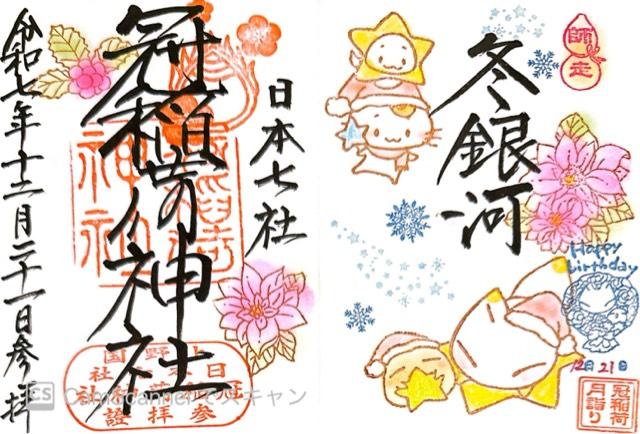 師走
冬銀河
Happy
birthday
12月21日
冠稲荷
月詣り
日本七社
冠稲荷神社
令和七年十二月二十一日参拝
CS CamScannerでスキャン